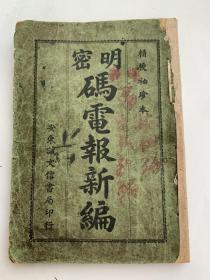 精校袖珍本
明密
碼電報新編
安東誠文信書局印行